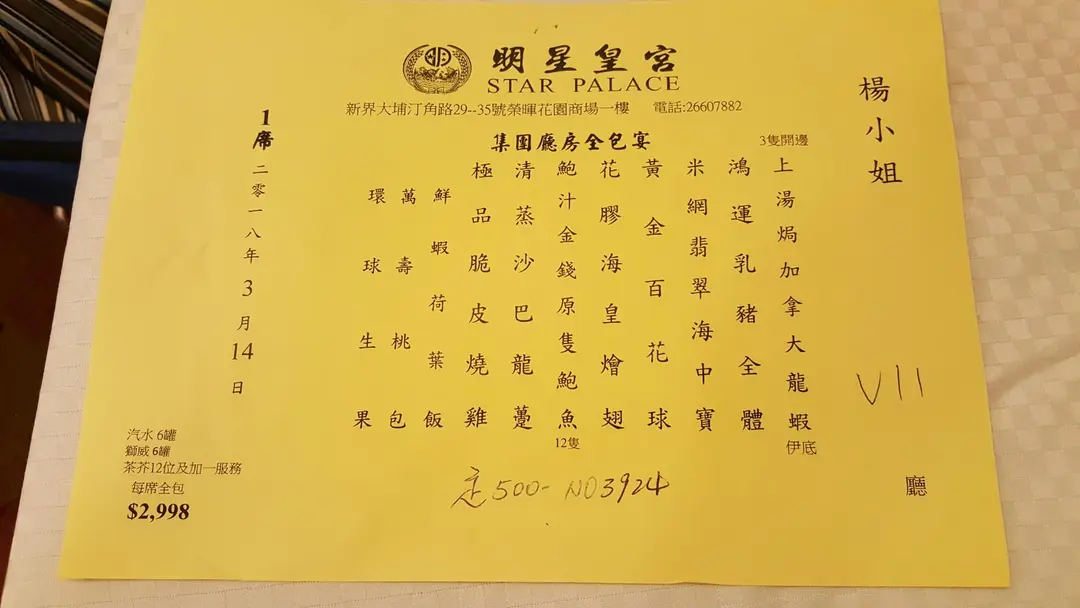 明星皇宮
STAR PALACE
新界大埔汀角路29--35號榮暉花園商場一樓 電話:26607882
集團廳房全包宴
楊小姐
VII
廳
3隻開邊
上湯焗加拿大龍蝦
伊底
鴻運乳豬全體
米網翡翠海中寶
黃金百花球
花膠海皇燴翅
鮑汁金錢原隻鮑魚
12隻
清蒸沙巴龍躉
極品脆皮燒雞
鮮蝦荷葉飯
萬壽桃包
環球生果
1席 二零一八年3月14日
汽水 6罐
獅威 6罐
茶芥12位及加一服務
每席全包
$2,998
定500- NO3924